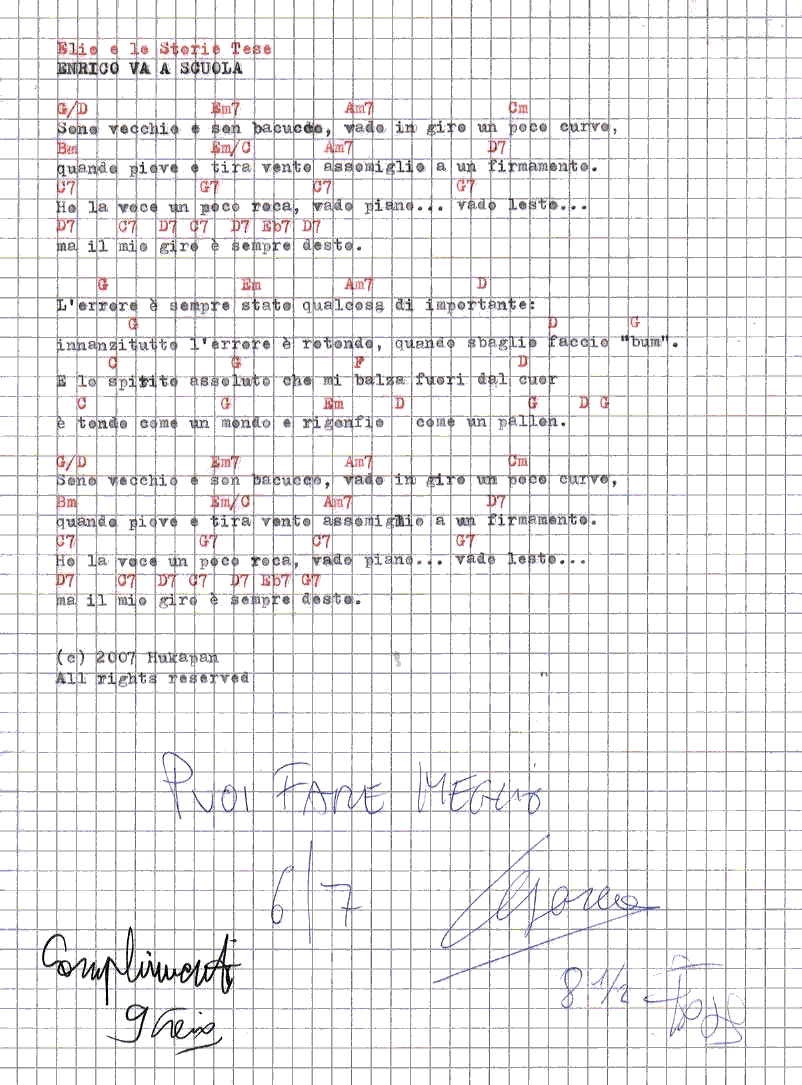 Elio e le Storie Tese
ENRICO VA A SCUOLA
G/D Em7 Am7 Cm
Sono vecchio e son bacucco, vado in giro un poco curvo,
Bm Em/C Am7 D7
quando piove e tira vento assomiglio a un firmamento.
C7 G7 C7 G7
Ho la voce un poco roca, vado piano... vado lesto...
D7 C7 D7 C7 D7 Eb7 D7
ma il mio giro è sempre desto.
G Em Am7 D
L'errore è sempre stato qualcosa di importante:
G D G
innanzitutto l'errore è rotondo, quando sbaglio faccio "bum".
C G F D
E lo spirito assoluto che mi balza fuori dal cuor
C G Em D G D G
è tondo come un mondo e rigonfio come un pallon.
G/D Em7 Am7 Cm
Sono vecchio e son bacucco, vado in giro un poco curvo,
Bm Em/C Am7 D7
quando piove e tira vento assomiglio a un firmamento.
C7 G7 C7 G7
Ho la voce un poco roca, vado piano... vado lesto...
D7 C7 D7 C7 D7 Eb7 G7
ma il mio giro è sempre desto.
(c) 2007 Hukapan
All rights reserved
PUOI FARE MEGLIO
6/7
Complimenti
8 1/2